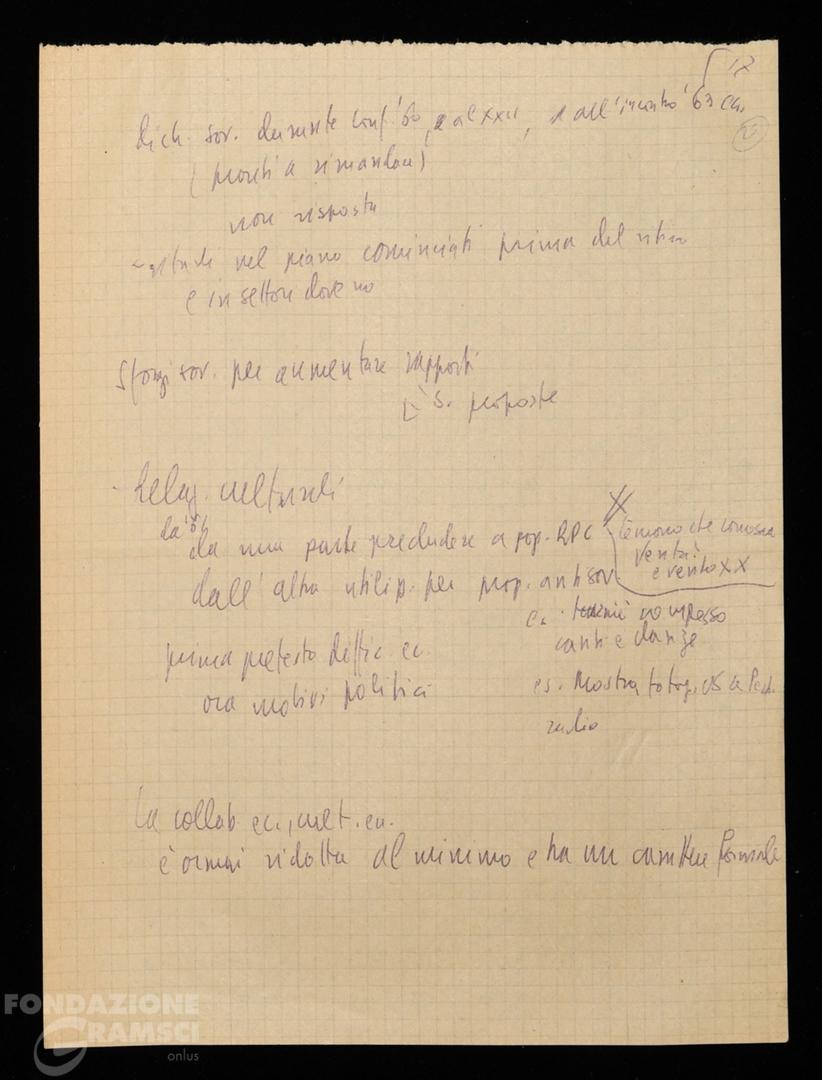 17
dich. sov. durante conf. '60, e al XXII, e all'incontro '63 ecc.
(pronti a rimandar)
non risposta
- nel piano cominciati prima del ritiro
e in settori dove no
Sforzi sov. per aumentare rapporti
5. proposte
- Relaz. culturali
da una parte precludere a pop. RPC
temono che conosca
verità:
e vento XX
dall'altra utilizz. per prop. antisov.
es. complesso
canti e danze
prima pretesto diffic. ec.
ora motivi politici
es. Mostra fotog. US a Pech.
radio
La collab. ec., cult. ecc.
è ormai ridotta al minimo e ha un carattere formale
FONDAZIONE
GRAMSCI
onlus